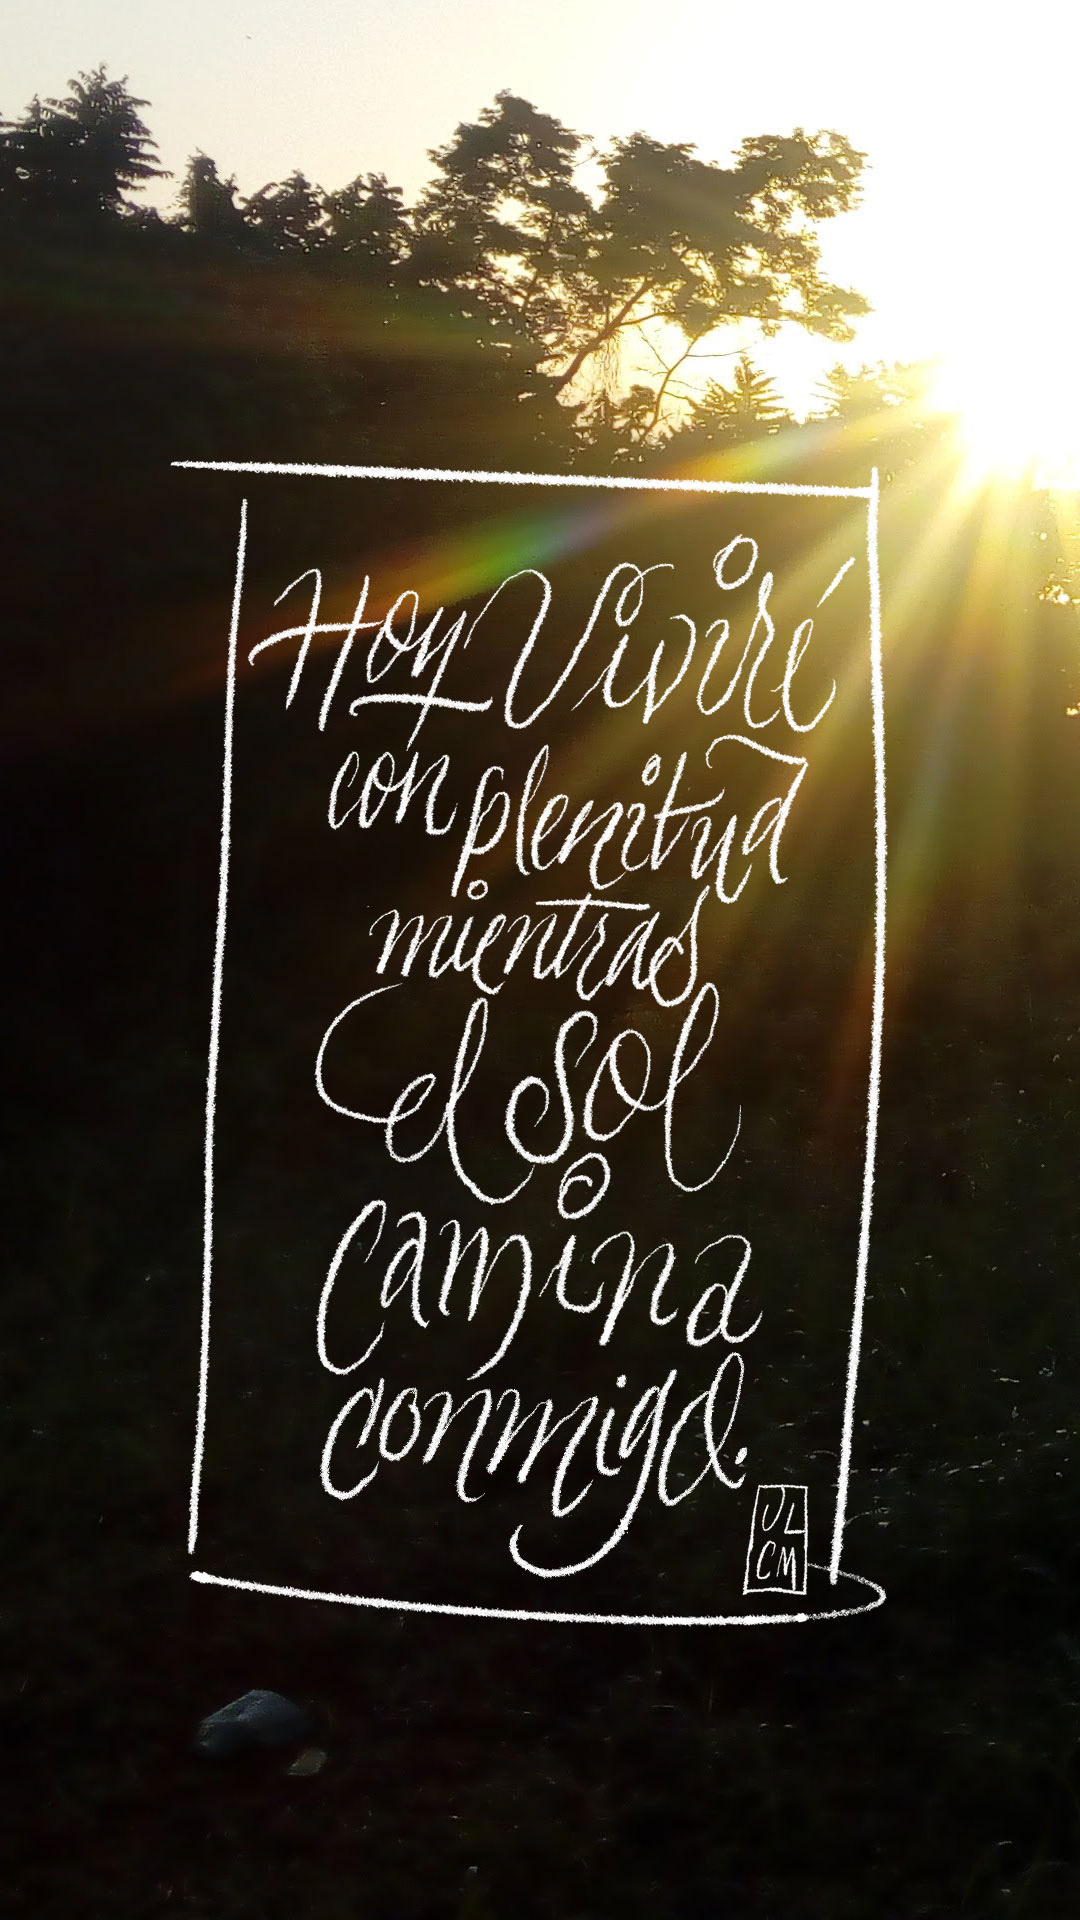 Hoy Viviré
con plenitud
mientras
el sol
camina
conmigo.
JL
CM